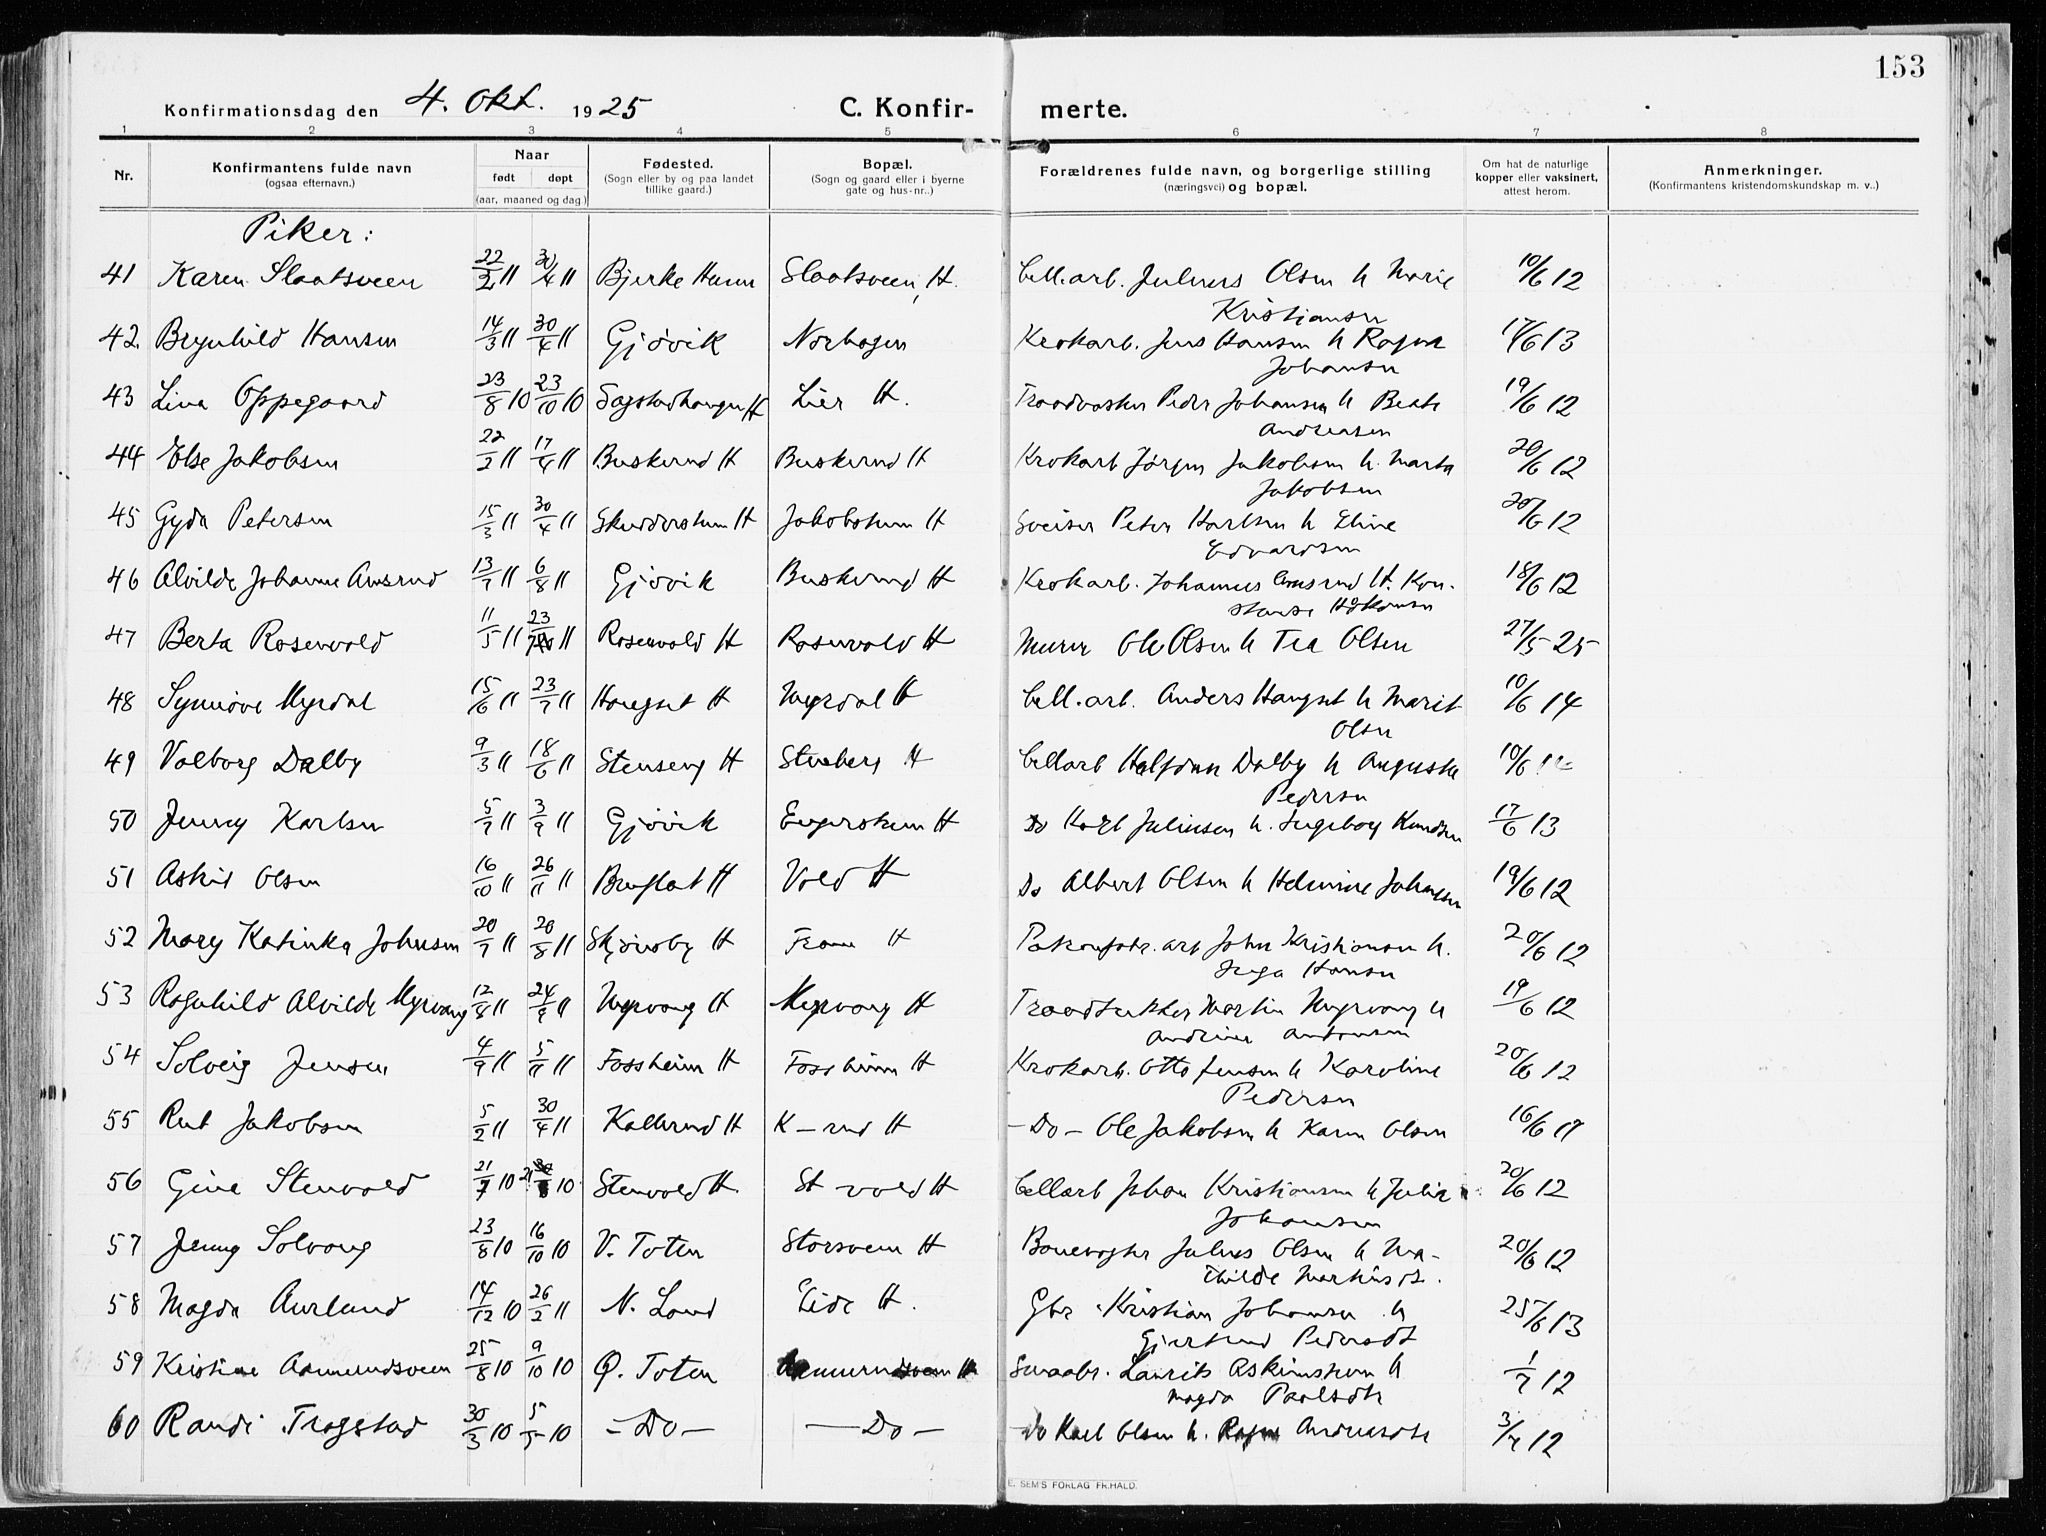 153
Konfirmationsdag den 4. Okt. 1925 C. Konfir- merte.
1 2 3 4 5 6 7 8
Nr. Konfirmantens fulde navn (ogsaa efternavn.) Naar født døpt (aar, maaned og dag.) Fødested. (Sogn eller by og paa landet tillike gaard.) Bopæl. (Sogn og gaard eller i byerne gate og hus-nr..) Forældrenes fulde navn, og borgerlige stilling (næringsvei) og bopæl. Om hat de naturlige kopper eller vaksinert, attest herom. Anmerkninger. (Konfirmantens kristendomskundskap m. v..)
Piker:
41 Karen Slaatsveen 22/2 11 30/4 11 Bjerke Hunn Slaatsveen, H. Cell.arb. Julius Olsen h Marie 10/6 12
Kristiansen
42. Brynhild Hansen 14/3 11 30/4 11 Gjøvik Norhagen Krokarb. Jens Hansen h Ragna 17/6 13
Johansen
43 Lina Oppegaard 23/8 10 23/10 10 Sagstadhaugen H Lier H. Peder Johansen h Beate 19/6 12
Andreasen
44 Else Jakobsen 22/2 11 17/4 11 Buskerud H Buskerud H Krokarb Jørgen Jakobsen h. Marta 20/6 12
Jakobsen
45 Gyda Petersen 15/3 11 30/4 11 Skundershem H Jakobshem H Sveiser Peter Karlsen h Eline 20/6 12
Edvardsen
46 Alvilde Johanne Amsrud 13/7 11 6/8 11 Gjøvik Buskerud H Krokarb. Johannes Amsrud H. Kon- 18/6 12
stanse Håkonsen
47 Berta Rosenvold 11/5 11 23/7 11 Rosenvold H Rosenvold H Murer Ole Olsen h Tea Olsen 27/5 25
48 Synnøve Myrdal 15/6 11 23/7 11 Haugset H Myrdal H Cell.arb. Anders Haugset h Marit 10/6 14
Olsen
49 Valborg Dalby 9/3 11 18/6 11 Stenseng H Stenberg H Cellarb Halfdan Dalby h Auguste 10/6
Pedersen
50 Jenny Karlsen 5/7 11 3/9 11 Gjøvik Engershem H Do Karl Juliusen h. Ingeborg Knudsen 17/6 13
51 Askil Olsen 16/10 11 26/11 11 Bruflat H Vold H Do Albert Olsen h Helmine Johansen 19/6 12
52 Mary Katinka Johnsen 20/7 11 20/8 11 Skjønsby H Fram H John Kristiansen h. 20/6 12
Inga Hansen
53 Ragnhild Alvilde Myrvang 12/8 11 24/9 11 Myrvang H Myrvang H Traadtrekker Martin Myrvang h 19/6 12
Andrine Antonsen
54 Solveig Jensen 4/9 11 5/11 11 Fossheim H Fossheim H Krokarb. Otto Jensen h Karoline 20/6 12
Pedersen
55 Rut Jakobsen 5/2 11 30/4 11 Kallerud H K-rud H -Do- Ole Jakobsen h Karen Olsen 16/6 17
56 Gina Stenvold 21/7 10 21/8 10 Stenvold H. St-vold H Cellarb Johan Kristiansen h Julie 20/6 12
Johansen
57 Jenny Solvang 23/8 10 16/10 10 V. Toten Storsveen H Banevogter Julius Olsen h Ma- 20/6 12
thilde Markusdt.
58 Magda Aurland 14/12 10 26/2 11 N. Land Eide H. Gbr. Kristian Johansen h 25/6 13
Gjertrud Pedersdt
59 Kristine Aamundsveen 25/8 10 9/10 10 Ø. Toten Aamundsveen H Smaabr. Laurits Askimshem h 1/7 12
Magda Paulsdtr
60 Randi Trogstad 30/3 10 5/5 10 -Do- -Do- Do Karl Olsen h. Ragna Andreasdtr 3/7 12
E. SEM'S FORLAG FR.HALD.